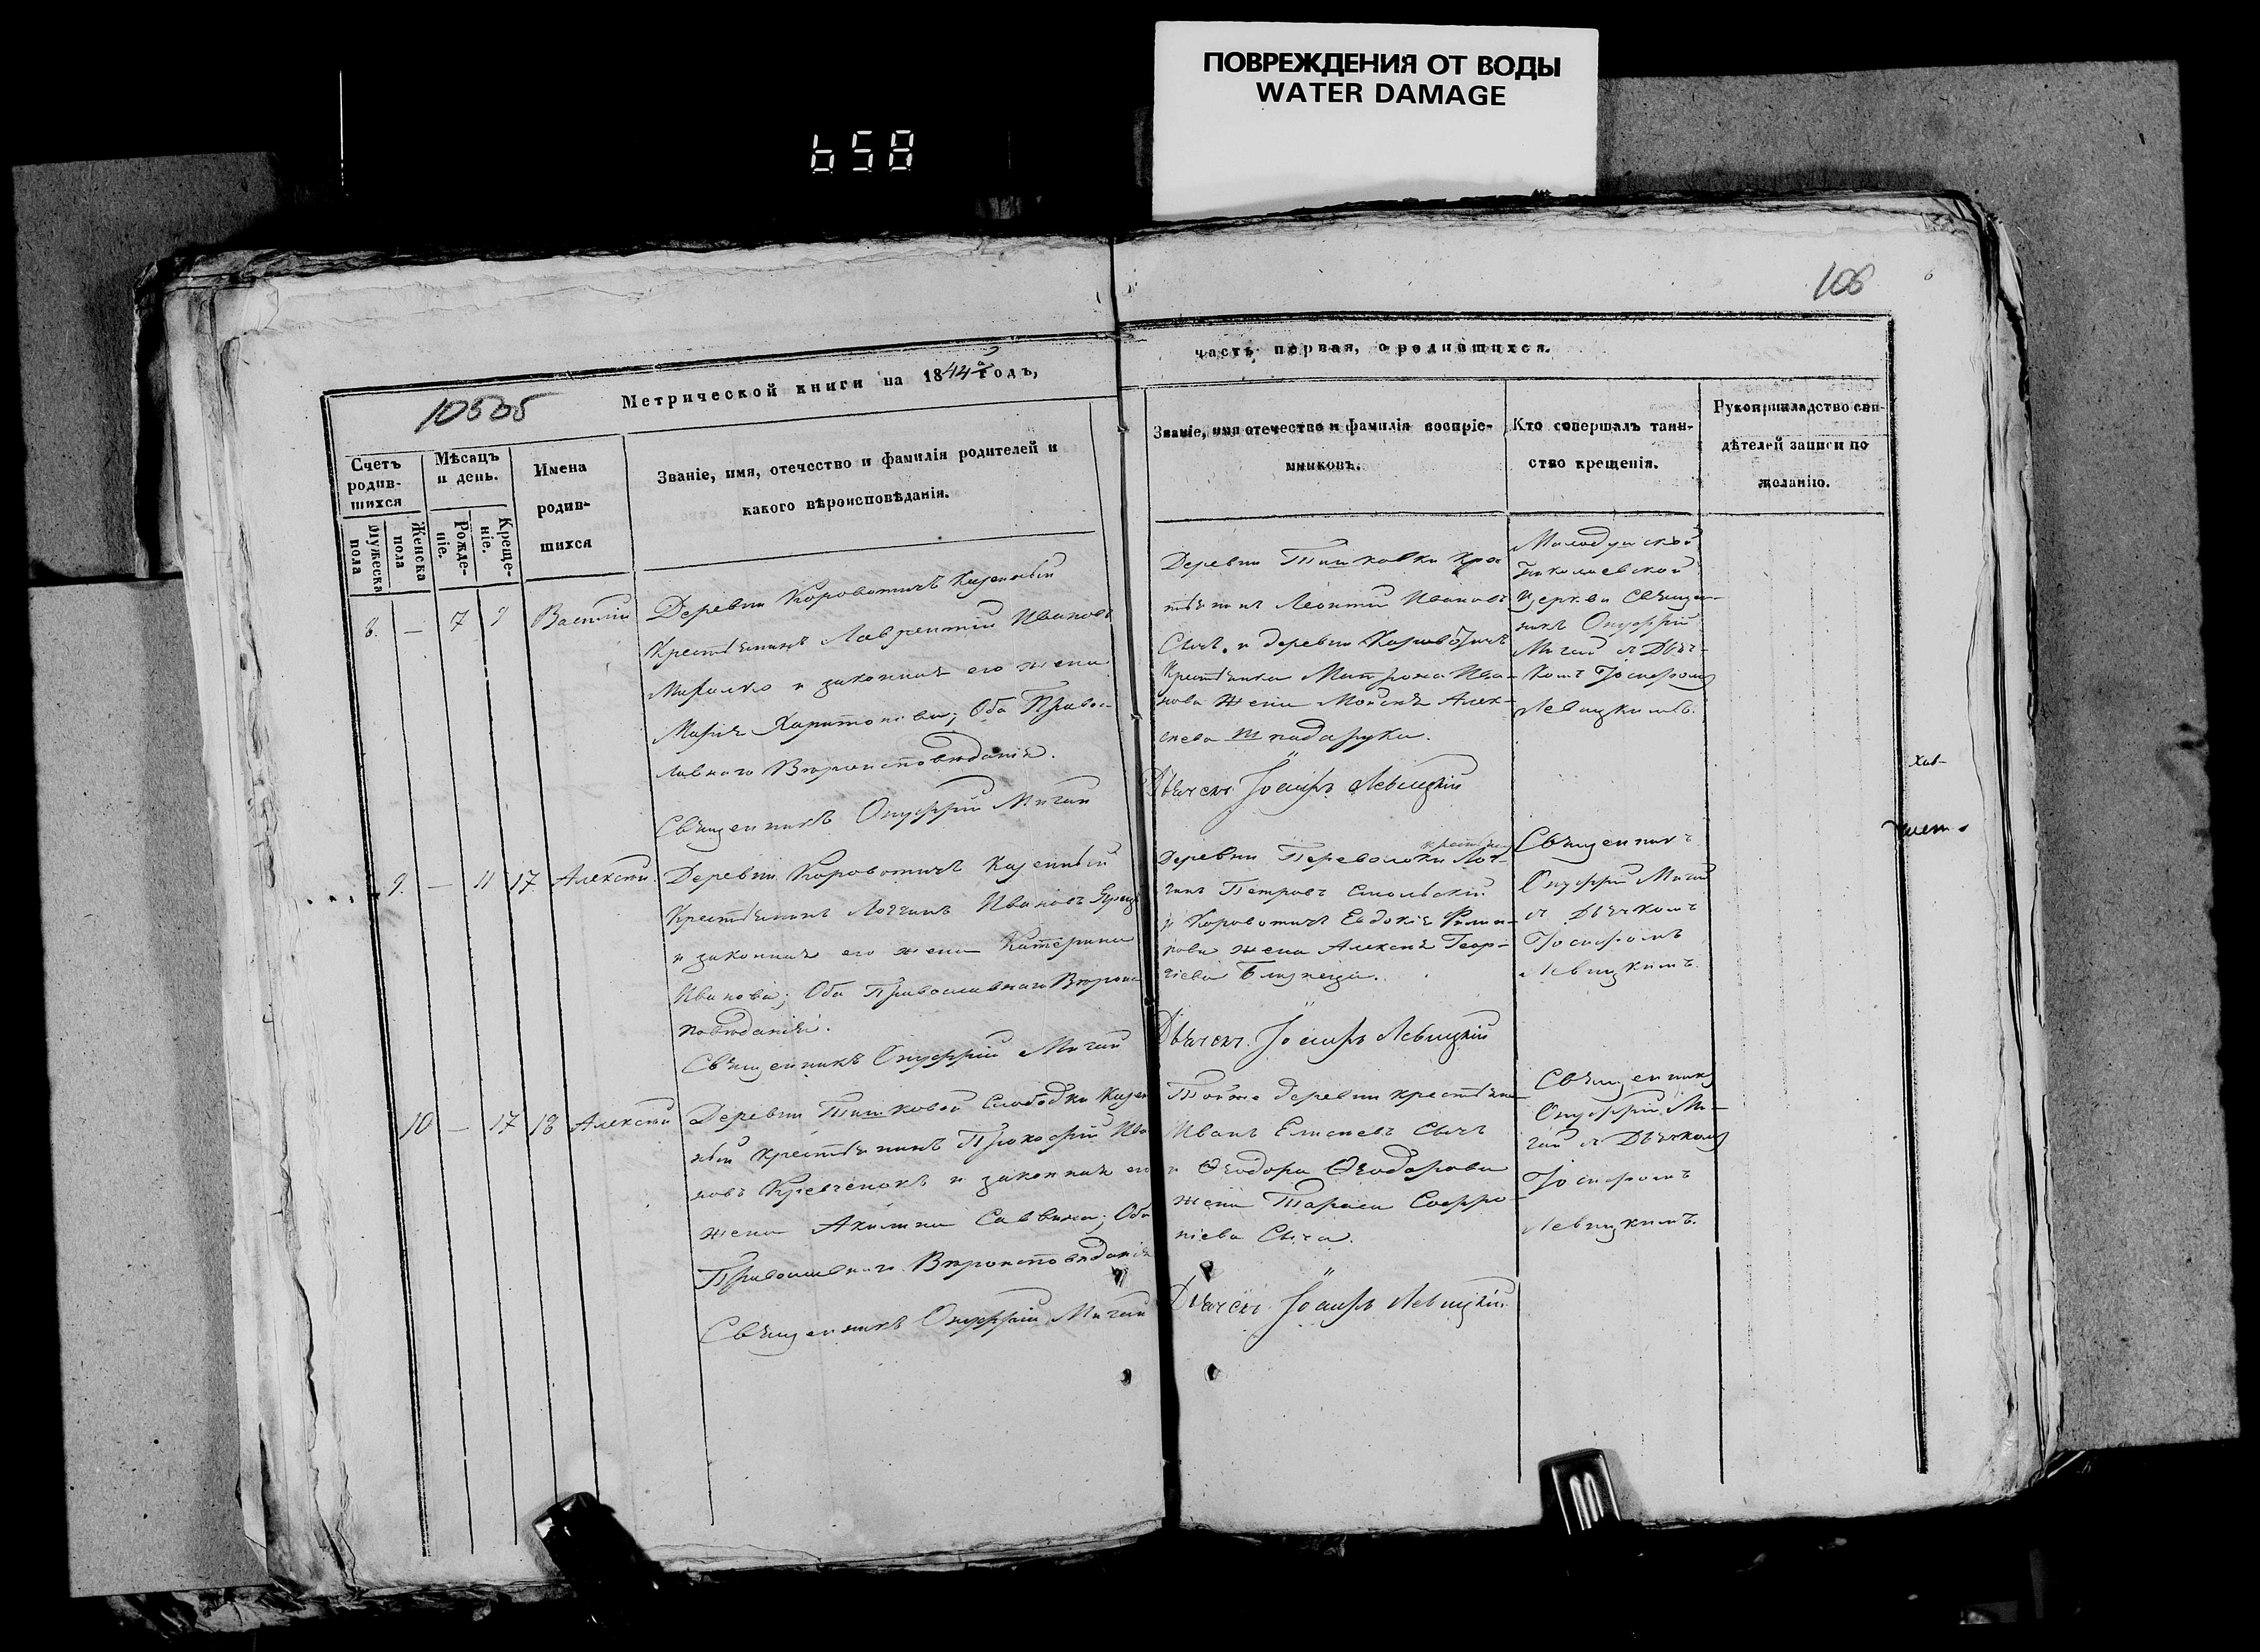 ПОВРЕЖДЕНИЯ ОТ ВОДЫ
WATER DAMAGE
658
106
10505
Метрической книги на 1844 годъ,
часть первая, о родившихся.
Счетъ родившихся
Мужеска пола
Женска пола
Мѣсяцъ и день.
Рожденіе.
Крещеніе.
Имена родившихся
Званіе, имя, отечество и фамилія родителей и
какого вѣроисповѣданія.
Званіе, имя отечество и фамилія воспріемниковъ.
Кто совершалъ таинство крещенія.
Рукоприкладство свидѣтелей записи по желанію.
8. — 7 9 Василій
Деревни Коровотичъ Казенный
Крестьянинъ Лаврентій Ивановъ
и законная его жена
Марія Харитонова; Оба Правос-
лавнаго Вѣроисповѣданія.
Священникъ Онуфрій Мигай
Деревни Тишковки кре-
стьянинъ Леонтій Ивановъ
Сычъ. и деревни Коровотичъ
Крестьянка Матрона Ива-
нова жена Моисея Алек-
сеева
Дьячекъ Іосифъ Левицкій
Малодушской
Николаевской
Церкви Священ-
никъ Онуфрій
Мигай съ Дьяч-
комъ Іосифомъ
Левицкимъ.
9. — 11 17 Алексѣй.
Деревни Коровотичъ Казенный
Крестьянинъ Логгинъ Ивановъ
и законная его жена Катерина
Иванова; Оба Православнаго Вѣроис-
повѣданія.
Священникъ Онуфрій Мигай
Деревни Переволоки Лог-
гинъ Петровъ Смольскій
и Коровотичъ Евдокія
жена Алексѣя Геор-
гіева Близнеца.
Дьячекъ Іосифъ Левицкій
Священникъ
Онуфрій Мигай
съ Дьячкомъ
Іосифомъ
Левицкимъ.
10 — 17 18 Алексѣй
Деревни Тишковой Слободки Казен
ный крестьянинъ Прокофій Ива
новъ Кравченокъ и законная его
жена Акилина Саввина; Оба
Православнаго Вѣроисповѣданія
Священникъ Онуфрій Мигай
Тойже деревни крестьянинъ
Иванъ Елисеевъ Сычъ
и Ѳеодора Ѳеодорова
жена Тараса Софро-
ніева Сыча.
Дьячекъ Іосифъ Левицкій
Священникъ
Онуфрій Ми-
гай съ Дьячкомъ
Іосифомъ
Левицкимъ.